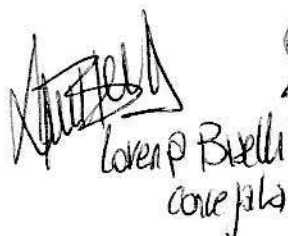 Lorena Biselli
Concejala